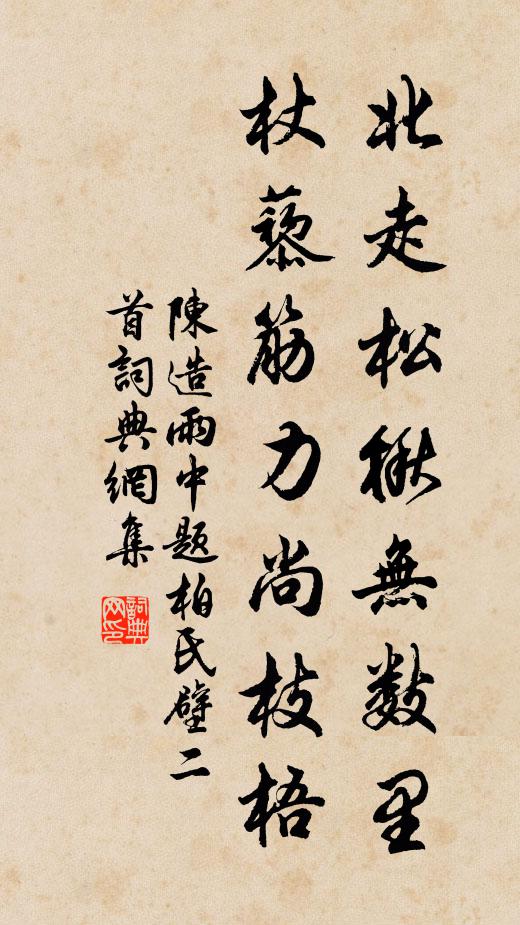 北走松楸無數里
杖藜筋力尚枝梧
陳造雨中題柏氏壁二
首詞典網集
詞典
网印